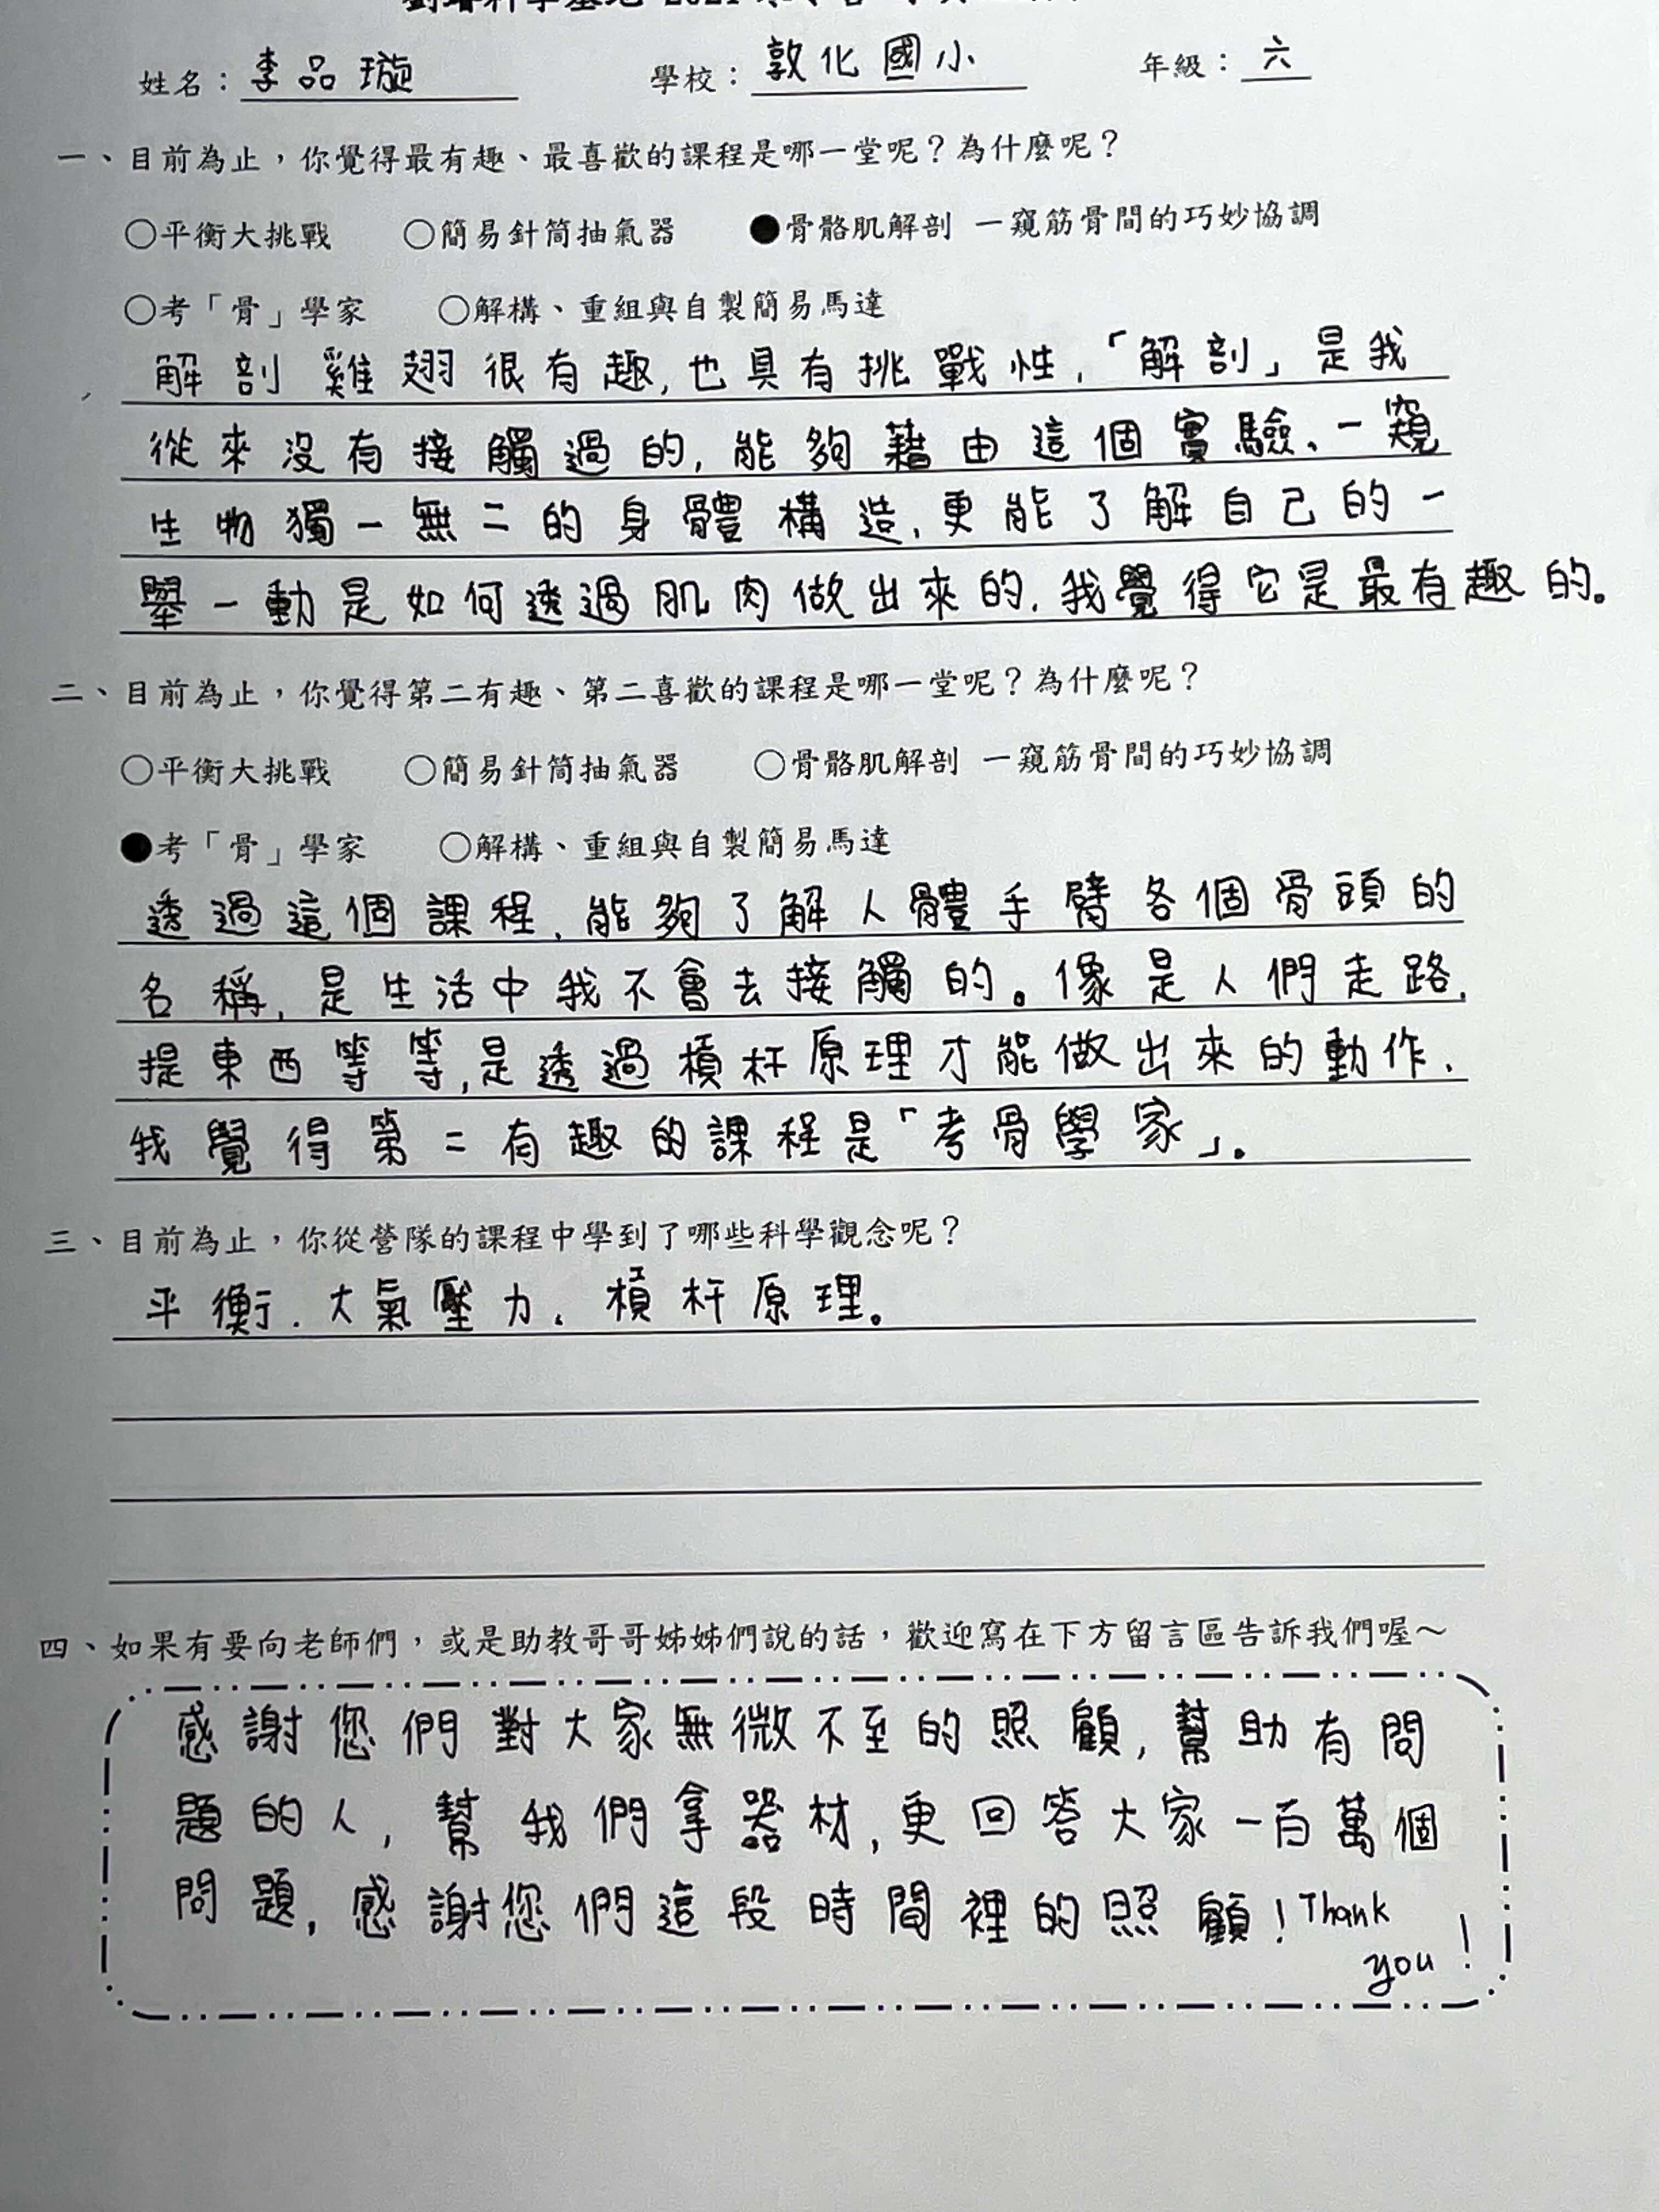 姓名：李品璇 學校：敦化國小 年級：六
一、目前為止，你覺得最有趣、最喜歡的課程是哪一堂呢？為什麼呢？
○平衡大挑戰 ○簡易針筒抽氣器 ●骨骼肌解剖 一窺筋骨間的巧妙協調
○考「骨」學家 ○解構、重組與自製簡易馬達
解剖雞翅很有趣，也具有挑戰性，「解剖」是我
從來沒有接觸過的，能夠藉由這個實驗、一窺
生物獨一無二的身體構造，更能了解自己的一
舉一動是如何透過肌肉做出來的，我覺得它是最有趣的。
二、目前為止，你覺得第二有趣、第二喜歡的課程是哪一堂呢？為什麼呢？
○平衡大挑戰 ○簡易針筒抽氣器 ○骨骼肌解剖 一窺筋骨間的巧妙協調
●考「骨」學家 ○解構、重組與自製簡易馬達
透過這個課程，能夠了解人體手臂各個骨頭的
名稱，是生活中我不會去接觸的。像是人們走路，
提東西等等，是透過槓杆原理才能做出來的動作，
我覺得第二有趣的課程是「考骨學家」。
三、目前為止，你從營隊的課程中學到了哪些科學觀念呢？
平衡、大氣壓力、槓杆原理。
四、如果有要向老師們，或是助教哥哥姊姊們說的話，歡迎寫在下方留言區告訴我們喔～
感謝您們對大家無微不至的照顧，幫助有問
題的人，幫我們拿器材，更回答大家一百萬個
問題，感謝您們這段時間裡的照顧！Thank
you！